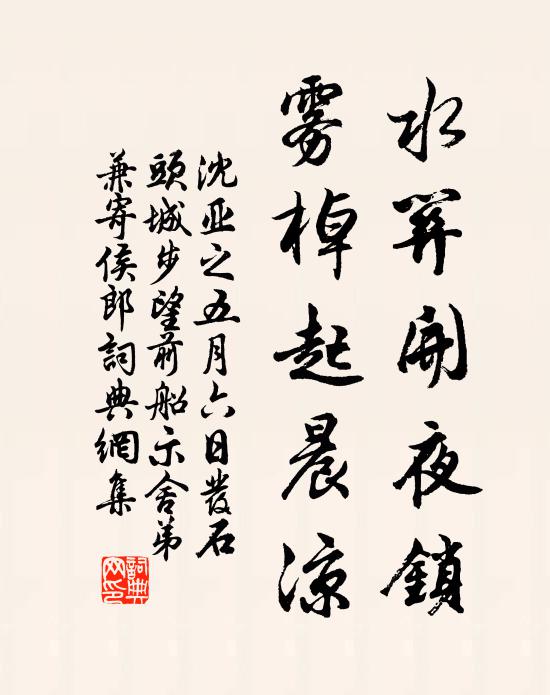 水關開夜鎖
霧棹起晨涼
沈亚之五月六日發石
頭城步望前船示舍弟
兼寄侯郎詞典網集
詞典网印